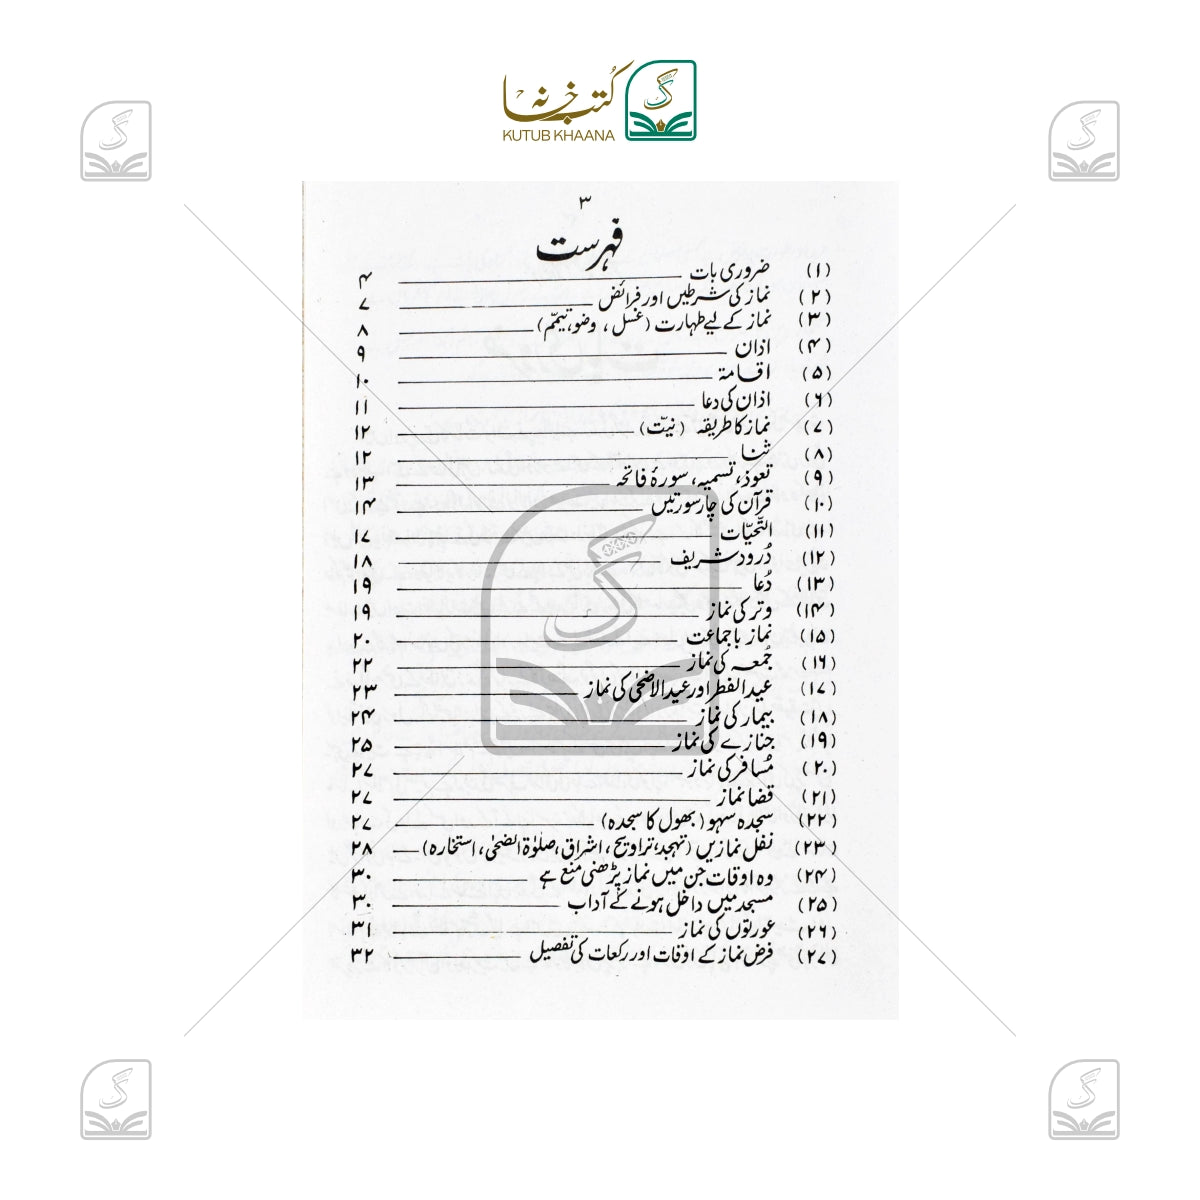 کتب خانہ
KUTUB KHAANA
۳
فہرست
(۱) ضروری بات ۴
(۲) نماز کی شرطیں اور فرائض ۷
(۳) نماز کے لیے طہارت (غسل، وضو، تیمّم) ۸
(۴) اذان ۹
(۵) اقامۃ ۱۰
(۶) اذان کی دعا ۱۱
(۷) نماز کا طریقہ (نیّت) ۱۲
(۸) ثنا ۱۲
(۹) تعوذ، تسمیہ، سورۂ فاتحہ ۱۳
(۱۰) قرآن کی چار سورتیں ۱۴
(۱۱) التّحیّات ۱۷
(۱۲) دُرود شریف ۱۸
(۱۳) دُعا ۱۹
(۱۴) وتر کی نماز ۱۹
(۱۵) نماز باجماعت ۲۰
(۱۶) جُمعہ کی نماز ۲۲
(۱۷) عیدالفطر اور عیدالاضحٰی کی نماز ۲۳
(۱۸) بیمار کی نماز ۲۴
(۱۹) جنازے کی نماز ۲۵
(۲۰) مُسافر کی نماز ۲۷
(۲۱) قضا نماز ۲۷
(۲۲) سجدہ سہو (بھول کا سجدہ) ۲۷
(۲۳) نفل نمازیں (تہجد، تراویح، اشراق، صلوٰۃ الضحٰی، استخارہ) ۲۸
(۲۴) وہ اوقات جن میں نماز پڑھنی منع ہے ۳۰
(۲۵) مسجد میں داخل ہونے کے آداب ۳۰
(۲۶) عورتوں کی نماز ۳۱
(۲۷) فرض نماز کے اوقات اور رکعات کی تفصیل ۳۲